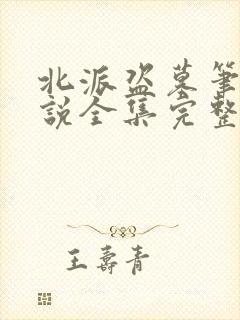 北派盗墓筆
說全集完整
王壽青